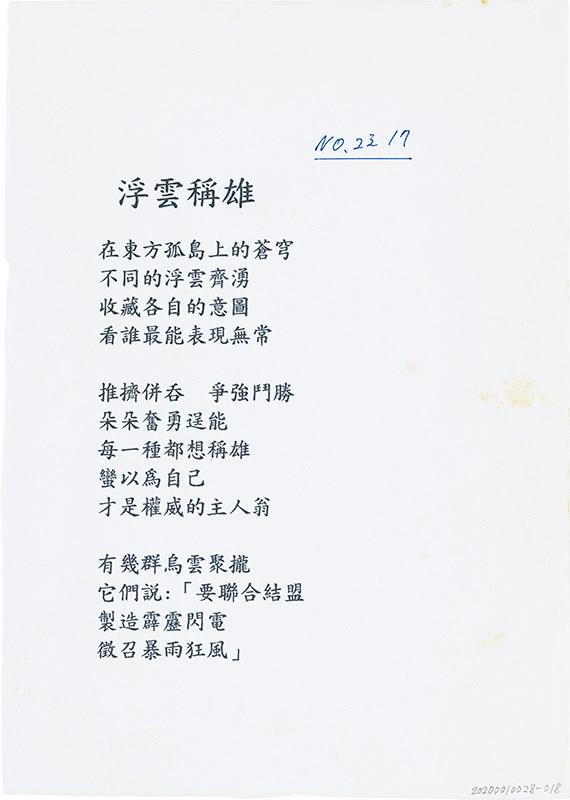 NO. 23 17
浮雲稱雄
在東方孤島上的蒼穹
不同的浮雲齊湧
收藏各自的意圖
看誰最能表現無常
推擠併吞　爭強鬥勝
朵朵奮勇逞能
每一種都想稱雄
蠻以為自己
才是權威的主人翁
有幾群烏雲聚攏
它們説:「要聯合結盟
製造霹靂閃電
徵召暴雨狂風」
20200010028-018